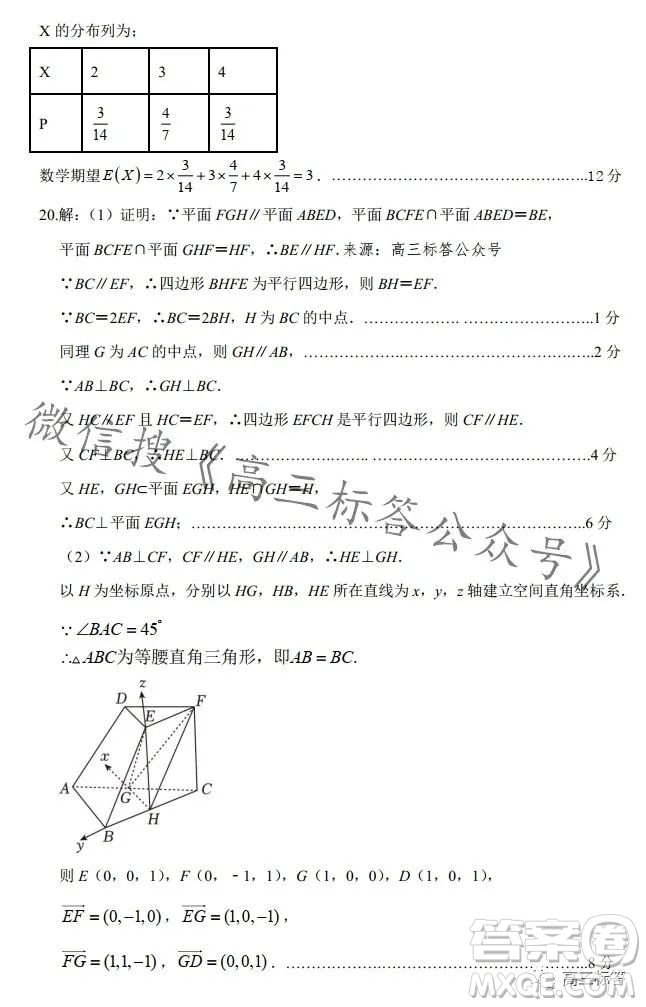 X 的分布列为；
X 2 3 4
P 3/14 4/7 3/14
数学期望 E(X)=2×3/14+3×4/7+4×3/14=3．……………………………………………12 分
20.解：（1）证明：∵平面 FGH∥平面 ABED，平面 BCFE∩平面 ABED＝BE，
平面 BCFE∩平面 GHF＝HF，∴BE∥HF.来源：高三标答公众号
∵BC∥EF，∴四边形 BHFE 为平行四边形，则 BH＝EF．
∵BC＝2EF，∴BC＝2BH，H 为 BC 的中点．…………………………………………1 分
同理 G 为 AC 的中点，则 GH∥AB，……………………………………………………2 分
∵AB⊥BC，∴GH⊥BC．
又 HC∥EF 且 HC＝EF，∴四边形 EFCH 是平行四边形，则 CF∥HE．
又 CF⊥BC，∴HE⊥BC．…………………………………………………………4 分
又 HE，GH⊂平面 EGH，HE∩GH＝H，
∴BC⊥平面 EGH；………………………………………………………………6 分
（2）∵AB⊥CF，CF∥HE，GH∥AB，∴HE⊥GH．
以 H 为坐标原点，分别以 HG，HB，HE 所在直线为 x，y，z 轴建立空间直角坐标系．
∵∠BAC=45°
∴△ABC为等腰直角三角形，即AB＝BC.
z
D F
E
x
A G C
H
B
y
则 E（0，0，1），F（0，﹣1，1），G（1，0，0），D（1，0，1），
EF=(0,-1,0)，EG=(1,0,-1)，
FG=(1,1,-1)，GD=(0,0,1)．……………………………………………8 分
微信搜《高三标答公众号》
答案卷
高三标答